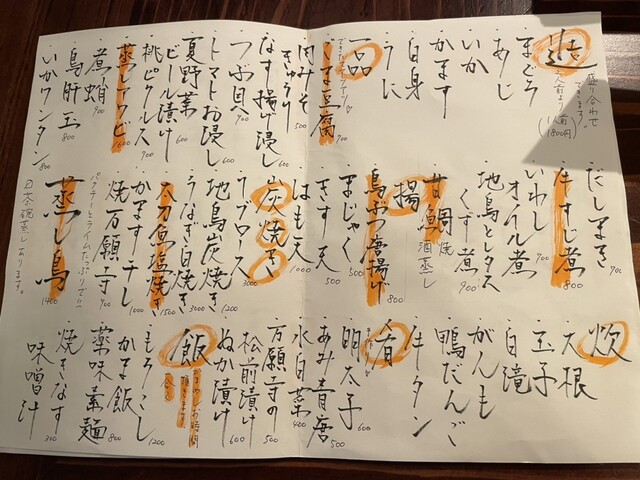 造
盛り合わせ
できます!
二人前より(一人前1800円)
まぐろ
あじ
いか
かます
白身
うに
一品
くず豆腐 700
肉みそきゅうり 500
なす揚げ浸し
つぶ貝 700
トマトお浸し
夏野菜ビール漬け 600
桃ピクルス 900
蒸しアワビ 1600
煮蛸 900
鳥肝玉 800
いかワンタン 800
だしまき 700
牛すじ煮 1800
いわしオイル煮
地鳥とレタスくず煮 900
甘鯛 焼 酒蒸し
揚
鳥ぶつ唐揚げ 800
まじゃく 500
きす天 500
はも天 1000
炭焼き
ラブロース 3000
地鳥炭焼き 1200
うなぎ白焼き 3000
太刀魚塩焼き 1500
かます干し 1000
焼万願寺 900
パクチーとライムたっぷりで!!
蒸し鳥 1400
白茶碗蒸しあります。
炊
大根
玉子
白滝
がんも
鴨だんご
牛タン
肴
明太子 600
あみ青唐 500
水白菜 400
万願寺の 500
松前漬け 600
ぬか漬け 600
飯
もろこし 1200
かま飯
薬味素麺 800
焼きなす
味噌汁 300